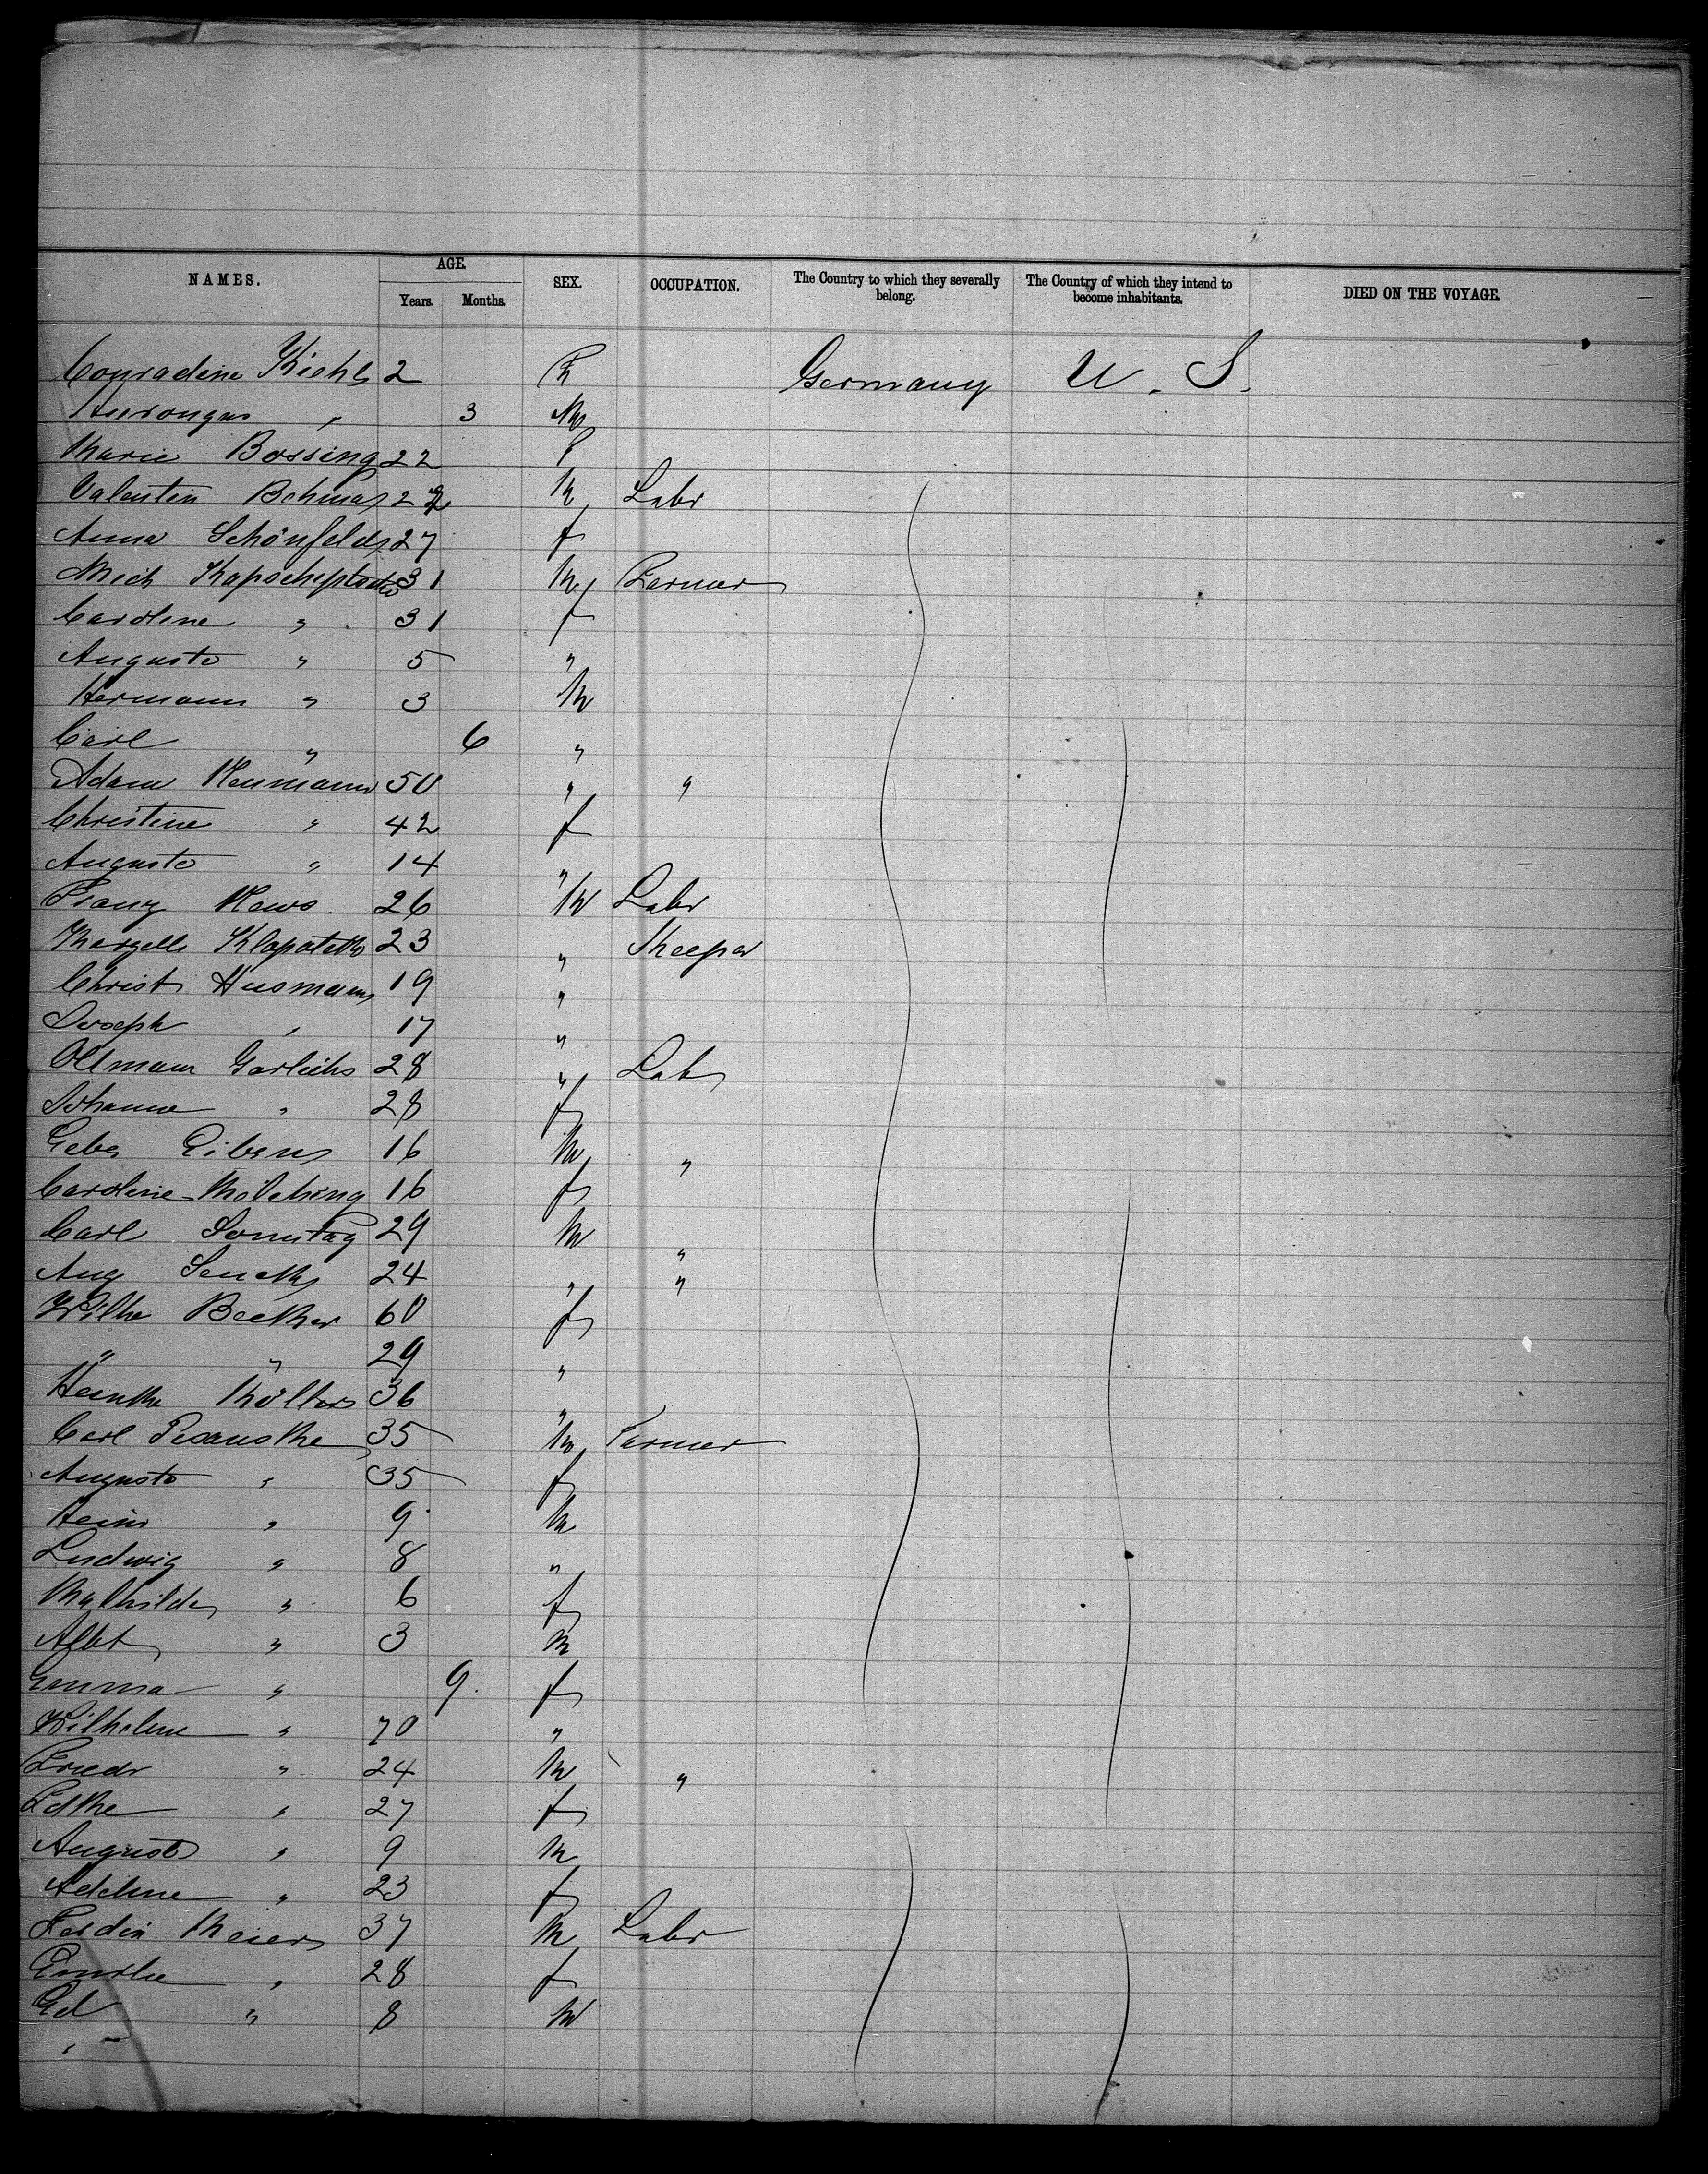 NAMES. AGE. SEX. OCCUPATION. The Country to which they severally belong. The Country of which they intend to become inhabitants. DIED ON THE VOYAGE.
Years. Months.
Conradine Kiehl 2 F Germany U. S.
" 3 M
Marie Bossing 22 f
Valentin 22 M Labr
Anna Schönfeld 27 f
Mich 31 M Farmer
Caroline " 31 f
Auguste " 5 "
Hermann " 3 M
Carl " 6 "
Adam Neumann 50 " "
Christine " 42 f
Auguste " 14 "
Franz News 26 M Labr
23 "
Christ Husmann 19 "
Joseph " 17 "
Oltmann Garlichs 28 " Lab
Johanne " 28 f
Gebe Eibens 16 M "
Caroline Mölching 16 f
Carl Sonntag 29 M "
Aug 24 " "
Wilhe Becker 60 f
" " 29 "
Wolters 36 "
Carl 35 M Farmer
Auguste " 35 f
Heinr " 9 M
Ludwig " 8 "
Mathilde " 6 f
Albt " 3 M
Emma " 9 f
Wilhelm " 70 "
Friedr " 24 M "
" 27 f
August " 9 M
Adeline " 23 f
Ferdin Meier 37 M Labr
Emilie " 28 f
Ed " 8 M